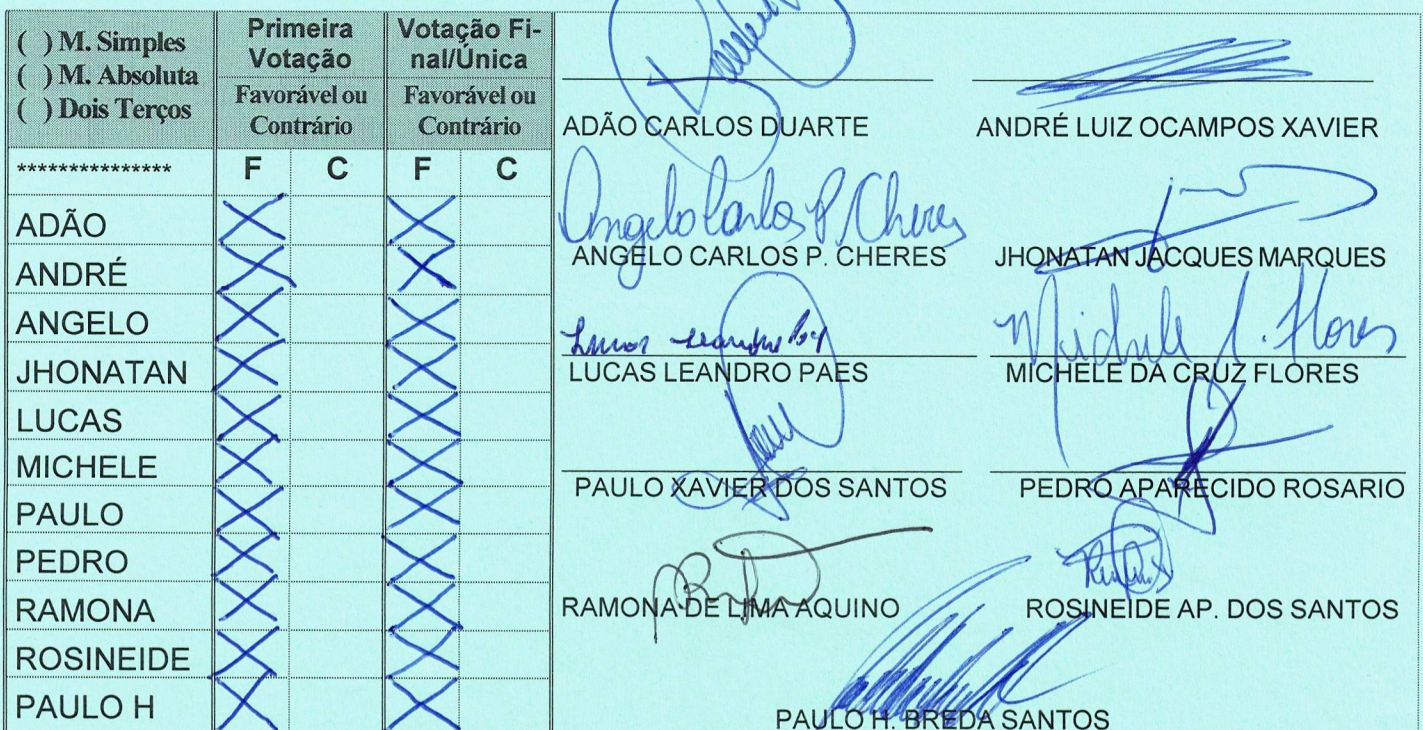 ( ) M. Simples
( ) M. Absoluta
( ) Dois Terços
Primeira
Votação
Favorável ou
Contrário
Votação Fi-
nal/Única
Favorável ou
Contrário
*************** F C F C
ADÃO X X
ANDRÉ X X
ANGELO X X
JHONATAN X X
LUCAS X X
MICHELE X X
PAULO X X
PEDRO X X
RAMONA X X
ROSINEIDE X X
PAULO H X X
ADÃO CARLOS DUARTE
ANDRÉ LUIZ OCAMPOS XAVIER
Angelo Carlos P. Cheres
ANGELO CARLOS P. CHERES
JHONATAN JACQUES MARQUES
LUCAS LEANDRO PAES
Michele d. Flores
MICHELE DA CRUZ FLORES
PAULO XAVIER DOS SANTOS
PEDRO APARECIDO ROSARIO
RAMONA DE LIMA AQUINO
ROSINEIDE AP. DOS SANTOS
PAULO H. BREDA SANTOS